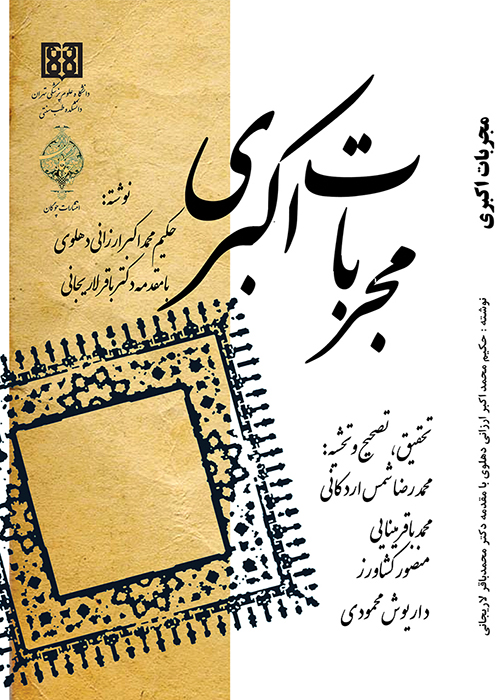 دانشگاه علوم پزشکی تهران
دانشکده طب سنتی
انتشارات چوگان
مجربات اکبری
نوشته:
حکیم محمد اکبر ارزانی دهلوی
با مقدمه دکتر باقر لاریجانی
تحقیق، تصحیح و تحشیه:
محمدرضا شمس اردکانی
محمدباقر مینایی
منصور کشاورز
داریوش محمودی
مجربات اکبری
نوشته : حکیم محمد اکبر ارزانی دهلوی با مقدمه دکتر محمدباقر لاریجانی